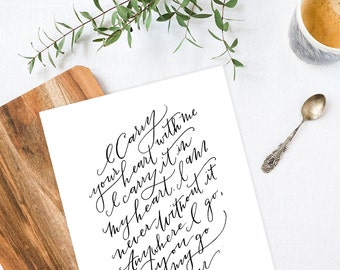 I Carry
your heart with me
I carry it in
my heart. I am
never without it
Anywhere I go,
you go
my